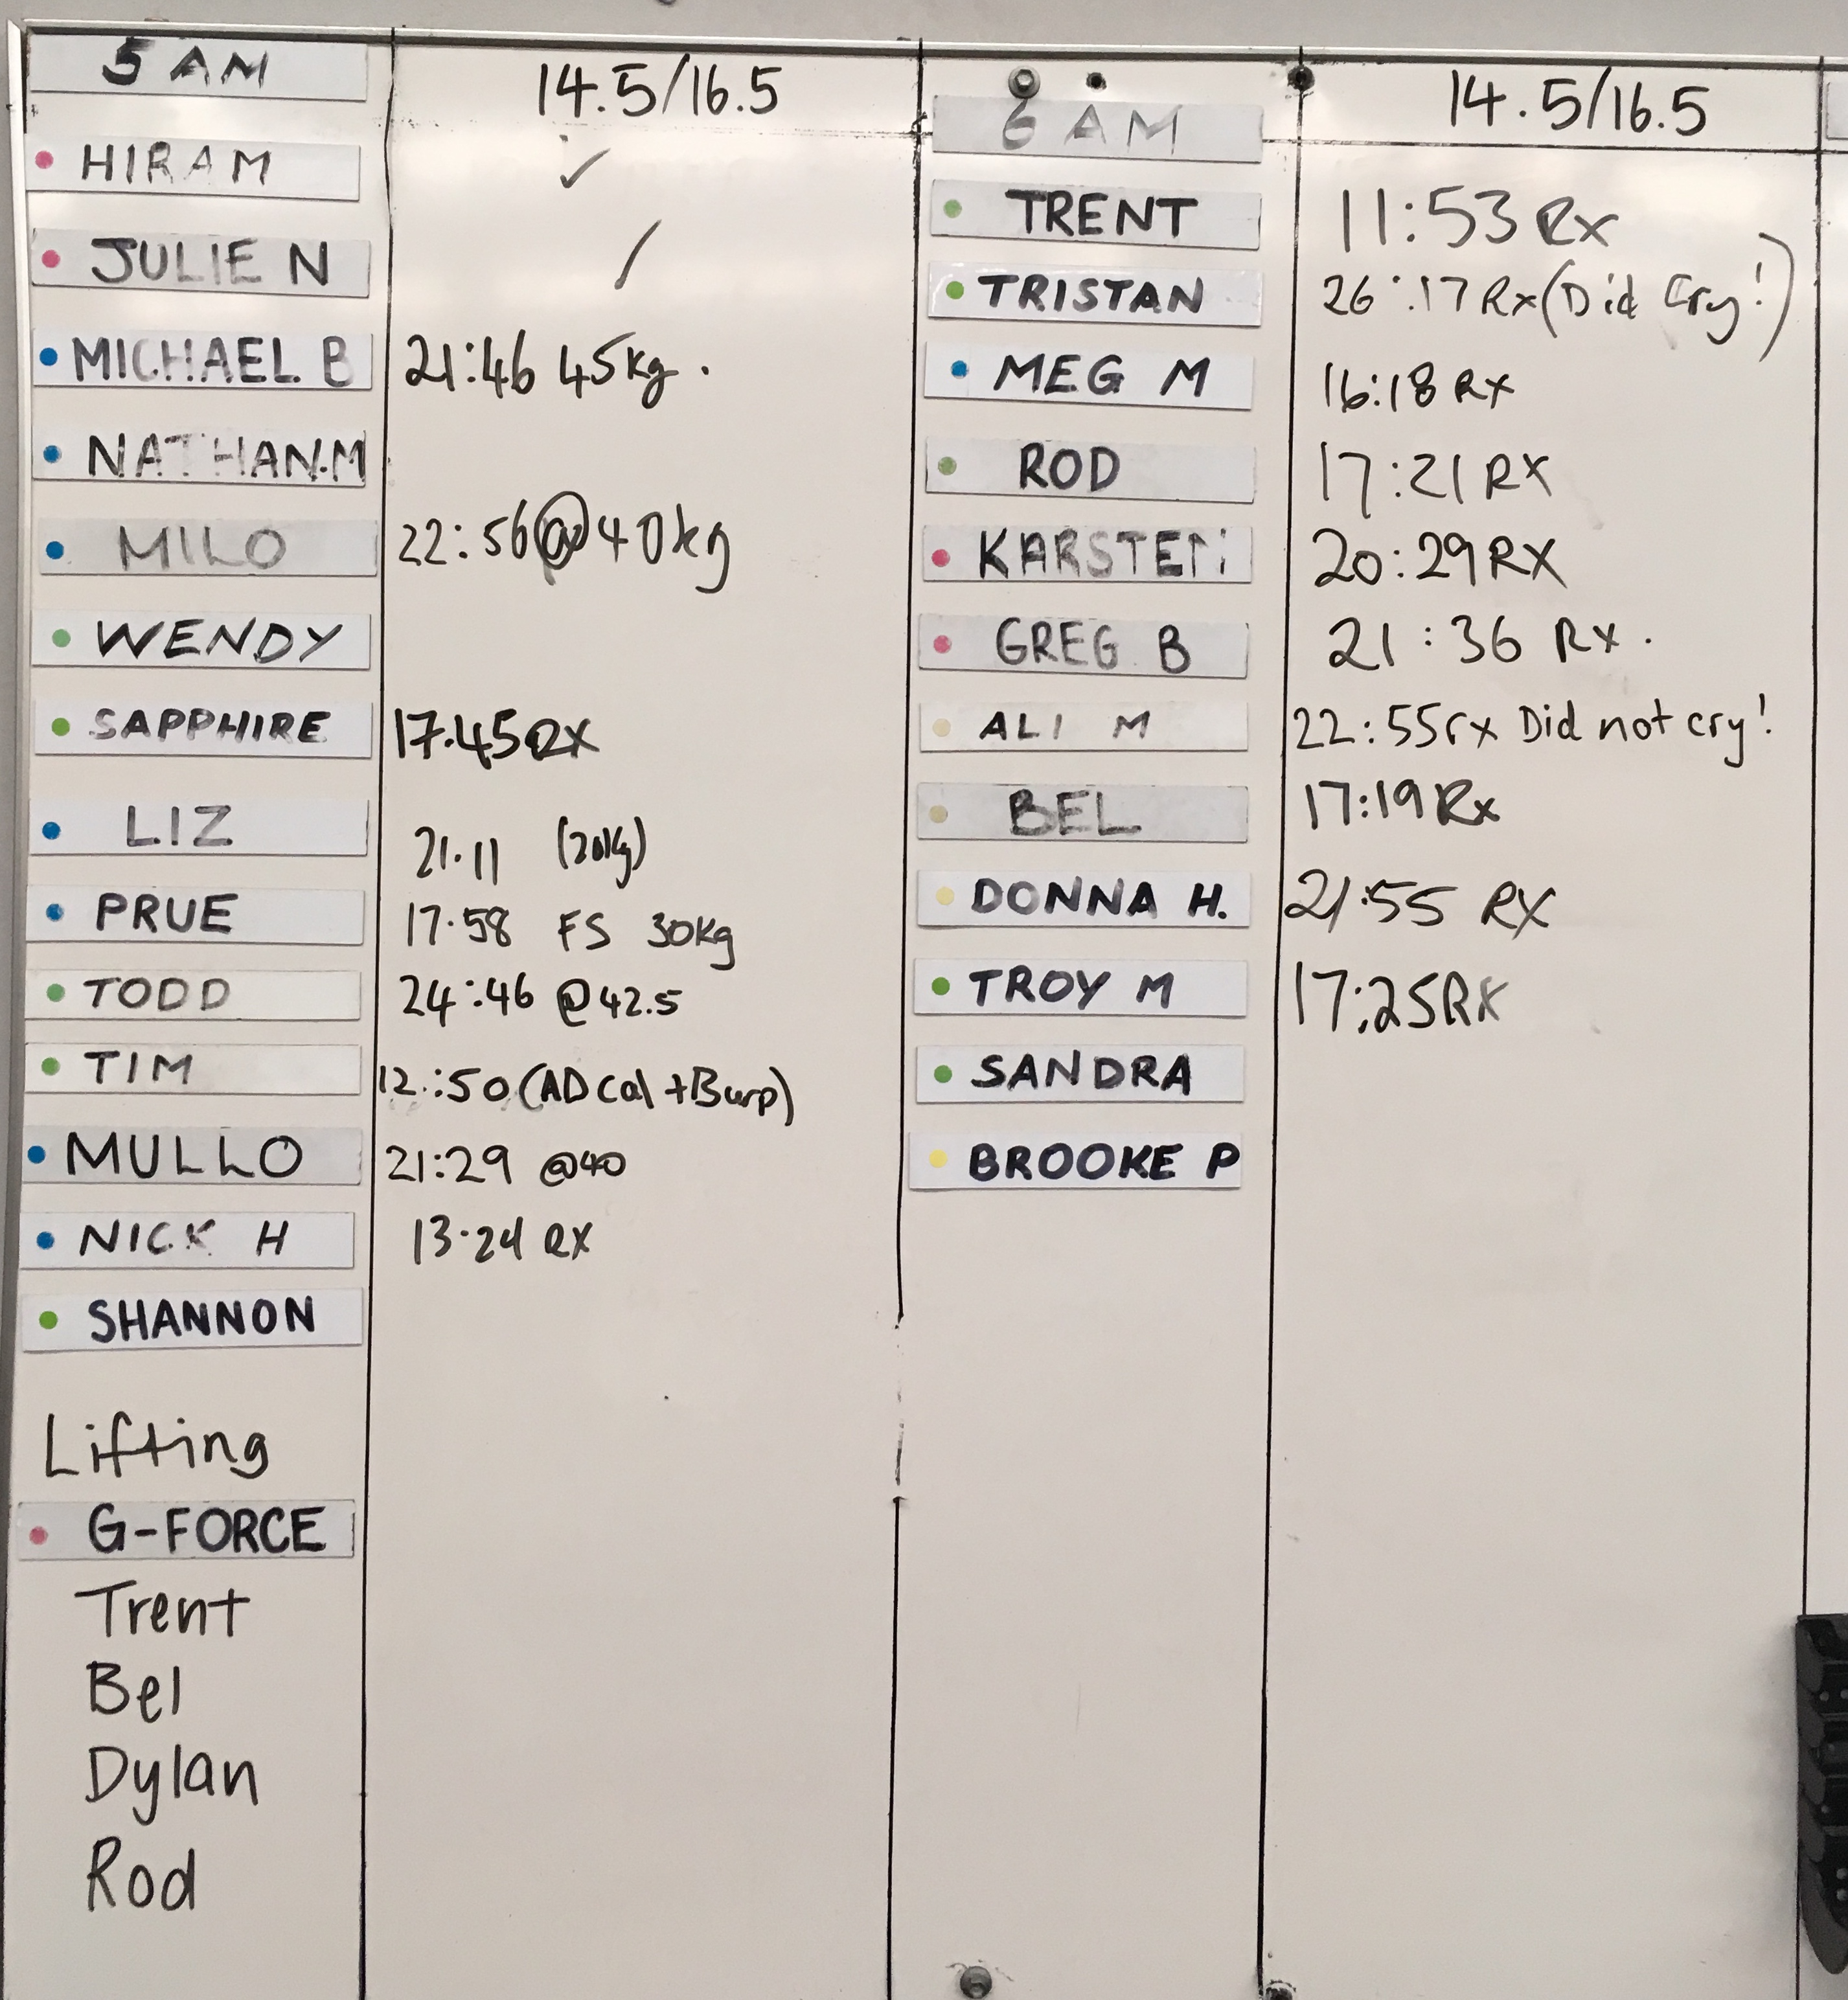 5 AM 14.5/16.5
HIRAM ✓
JULIE N /
MICHAEL B 21:46 45kg.
NATHAN.M
MILO 22:56 @ 40kg
WENDY
SAPPHIRE 17.45 RX
LIZ 21.11 (20kg)
PRUE 17.58 FS 30kg
TODD 24:46 @42.5
TIM 12:50 (AD cal + Burp)
MULLO 21:29 @40
NICK H 13.24 RX
SHANNON
Lifting
G-FORCE
Trent
Bel
Dylan
Rod
6 AM 14.5/16.5
TRENT 11:53 Rx
TRISTAN 26:17 Rx (Did Cry!)
MEG M 16:18 RX
ROD 17:21 RX
KARSTEN 20:29 RX
GREG B 21:36 Rx.
ALI M 22:55 rx Did not cry!
BEL 17:19 Rx
DONNA H. 21:55 RX
TROY M 17:25 RX
SANDRA
BROOKE P